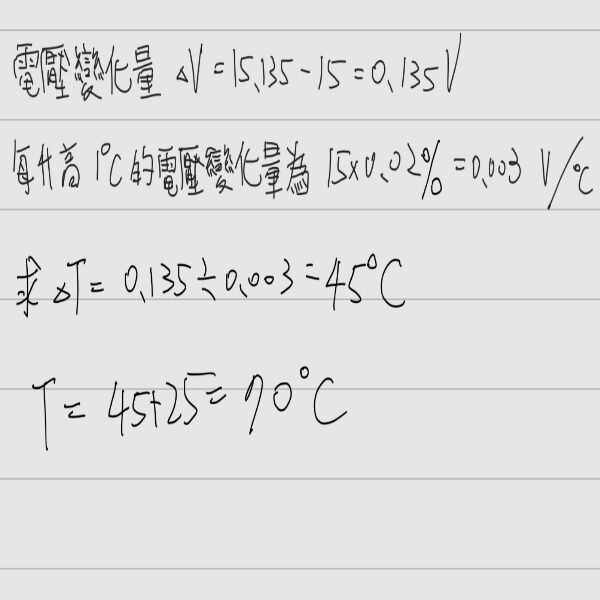 電壓變化量 ΔV = 15.135 - 15 = 0.135V
每升高 1°C 的電壓變化量為 15×0.02% = 0.003 V/°C
求 ΔT = 0.135÷0.003 = 45°C
T = 45+25 = 70°C